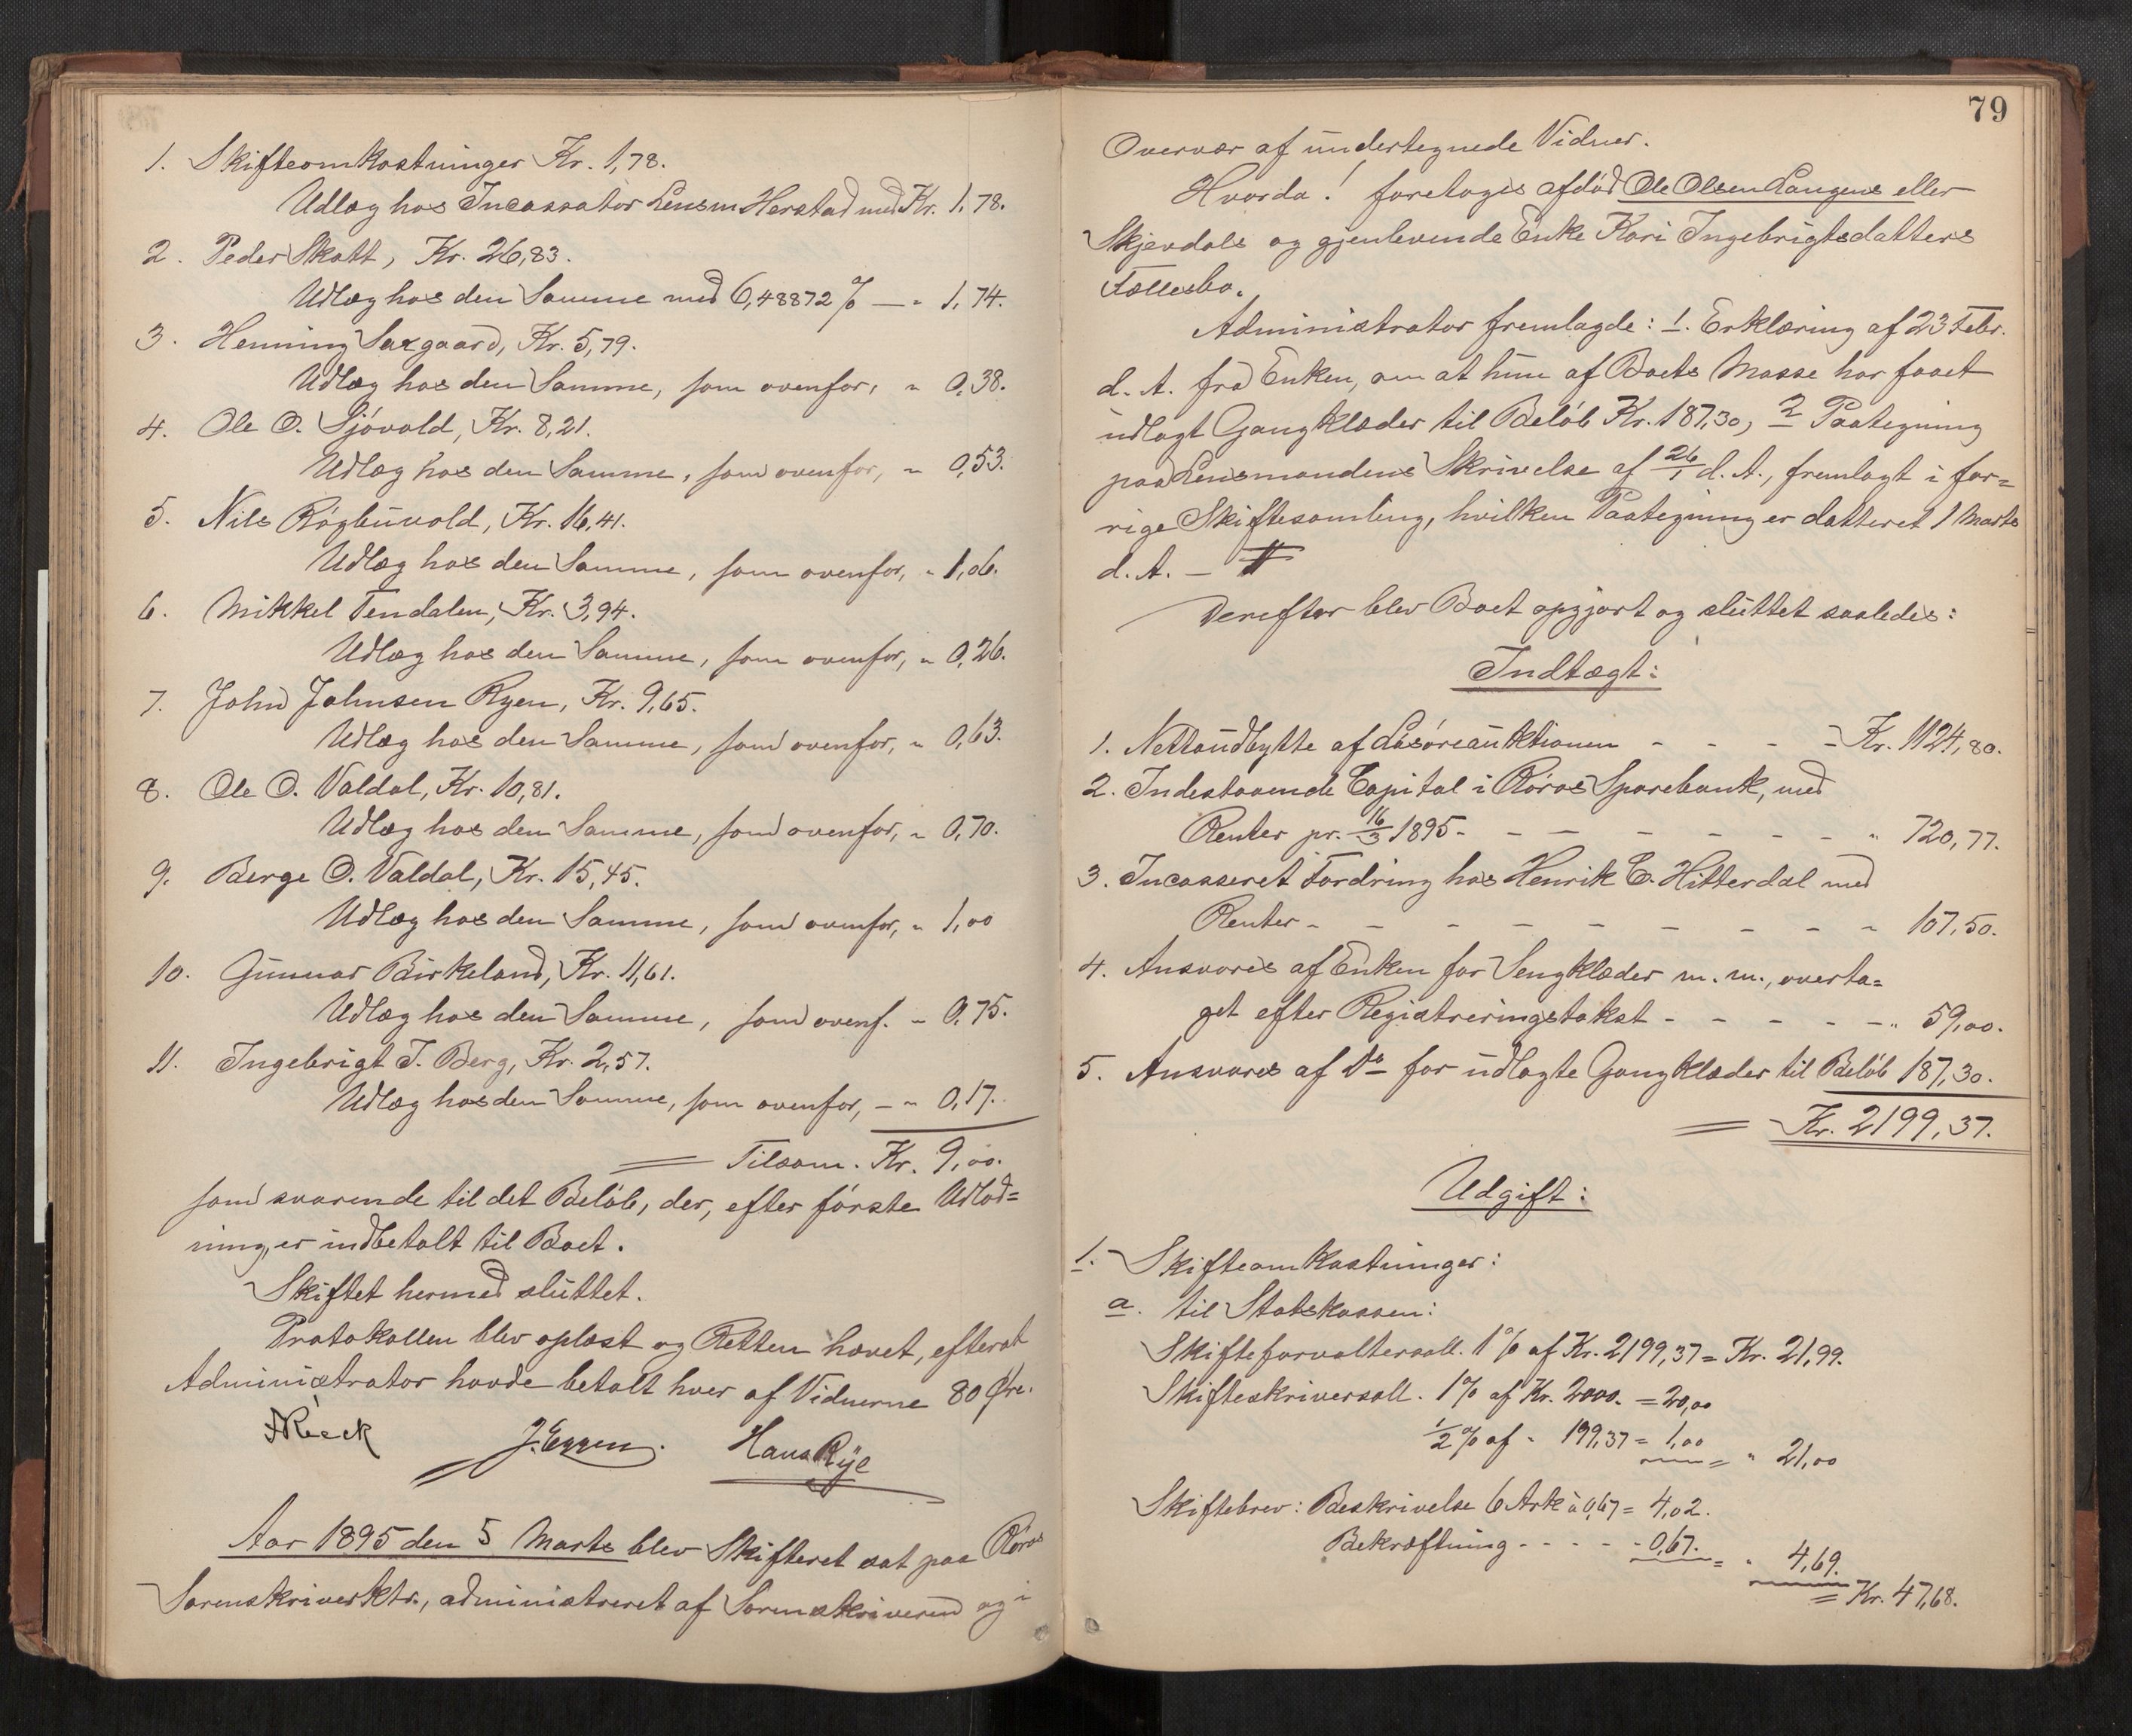 1. Skifteomkostninger Kr. 1,78.
Udlæg hos Incassator Lensm Herstad med Kr. 1,78.
2. Peder Skott, Kr. 26,83.
Udlæg hos den Samme med 6,48872 % — " 1,74.
3. Henning Saxgaard, Kr. 5,79.
Udlæg hos den Samme, som ovenfor, " 0,38.
4. Ole O. Sjøvold, Kr. 8,21.
Udlæg hos den Samme, som ovenfor, " 0,53.
5. Nils Røgbuvold, Kr. 16,41.
Udlæg hos den Samme, som ovenfor, " 1,06.
6. Mikkel Tendalen, Kr. 3,94.
Udlæg hos den Samme, som ovenfor, " 0,26.
7. John Johnsen Ryen, Kr. 9,65.
Udlæg hos den Samme, som ovenfor, " 0,63.
8. Ole O. Valdal, Kr. 10,81.
Udlæg hos den Samme, som ovenfor, " 0,70.
9. Berge O. Valdal, Kr. 15,45.
Udlæg hos den Samme, som ovenfor, " 1,00
10. Gunnar Birkeland, Kr. 11,61.
Udlæg hos den Samme, som ovenf. " 0,75.
11. Ingebrigt J. Berg, Kr. 2,57.
Udlæg hos den Samme, som ovenfor, — " 0,17.
= Tilsam. Kr. 9,00.
som svarende til det Beløb, der, efter første Udlod=
ning, er indbetalt til Boet.
Skiftet hermed sluttet.
Protokollen blev oplæst og Retten hævet, efterat
Administrator havde betalt hver af Vidnerne 80 Øre.
J. Eggen. Hans Rye
Aar 1895 den 5 Marts blev Skifteret sat paa Røros
Sorenskriverktr., administreret af Sorenskriveren og i
79
Overvær af undertegnede Vidner.
Hvorda! foretoges afdød Ole Olsen Langens eller
Skjevdals og gjenlevende Enke Kari Ingebrigtsdatters
Fællesbo.
Administrator fremlagde: 1. Erklæring af 23 Febr.
d. A. fra Enken, om at hun af Boets Masse har faaet
udlagt Gangklæder til Beløb Kr. 187,30, 2 Paategning
paa Lensmandens Skrivelse af 26/1 d. A., fremlagt i for=
rige Skiftesamling, hvilken Paategning er datteret 1 Marts
d. A. —
Derefter blev Boet opgjort og sluttet saaledes:
Indtægt:
1. Nettoudbytte af Løsøreauktionen - - - - Kr. 1124,80.
2. Indestaaende Capital i Røros Sparebank, med
Renter pr. 16/3 1895 - - - - - - - " 720,77.
3. Incasseret Fordring hos Henrik E. Hitterdal med
Renter - - - - - - - - - " 107,50.
4. Ansvares af Enken for Sengklæder m. m., overta=
get efter Registreringstakst - - - - - " 59,00.
5. Ansvares af Do for udlagte Gangklæder til Beløb 187,30.
= Kr. 2199,37.
Udgift:
1. Skifteomkostninger:
a. til Statskassen:
Skifteforvaltersall. 1 % af Kr. 2199,37 = Kr. 21,99.
Skifteskriversall. 1 % af Kr. 2000. = 20,00
1/2 % af " 199,37 = 1,00 = " 21,00
Skiftebrev: Beskrivelse 6 Ark à 0,67 = 4,02.
Bekræftning - - - - - 0,67. = " 4,69.
= Kr. 47,68.